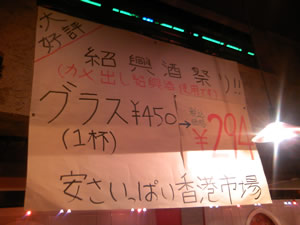 大好評
紹興酒祭り!!
(カメ出し紹興酒使用です)
グラス¥450→
¥294
(1杯)
安さいっぱい香港市場